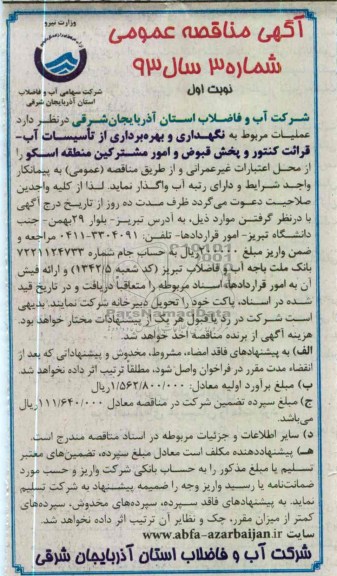 وزارت نیرو
آگهی مناقصه عمومی
شماره ۳ سال ۹۳
نوبت اول
شرکت سهامی آب و فاضلاب
استان آذربایجان شرقی
شرکت آب و فاضلاب استان آذربایجان‌شرقی درنظر دارد
عملیات مربوط به نگهداری و بهره‌برداری از تأسیسات آب-
قرائت کنتور و پخش قبوض و امور مشترکین منطقه اسکو را
از محل اعتبارات غیرعمرانی و از طریق مناقصه (عمومی) به پیمانکار
واجد شرایط و دارای رتبه آب واگذار نماید. لذا از کلیه واجدین
صلاحیت دعوت می‌گردد ظرف مدت ده روز از تاریخ درج آگهی
با درنظر گرفتن موارد ذیل، به آدرس تبریز- بلوار ۲۹بهمن- جنب
دانشگاه تبریز- امور قراردادها- تلفن: ۳۳۰۴۰۹۱-۰۴۱۱ مراجعه و
ضمن واریز مبلغ ریال به حساب جام شماره ۷۲۲۱۱۲۴۷۳۳
بانک ملت باجه آب و فاضلاب تبریز (کد شعبه ۱۳۴۲/۵) و ارائه فیش
آن به امور قراردادها، اسناد مربوطه را متعاقباً دریافت و در تاریخ قید
شده در اسناد، پاکت خود را تحویل دبیرخانه شرکت نمایند. بدیهی
است شرکت در رد یا قبول هر یک از پیشنهادات مختار خواهد بود.
هزینه آگهی از برنده مناقصه اخذ خواهد شد.
الف) به پیشنهادهای فاقد امضاء، مشروط، مخدوش و پیشنهاداتی که بعد از
انقضاء مدت مقرر در فراخوان واصل شود، مطلقاً ترتیب اثر داده نخواهد شد.
ب) مبلغ برآورد اولیه معادل: ۱/۵۶۲/۸۰۰/۰۰۰ریال
ج) مبلغ سپرده تضمین شرکت در مناقصه معادل ۱۱۱/۶۴۰/۰۰۰ریال
می‌باشد.
د) سایر اطلاعات و جزئیات مربوطه در اسناد مناقصه مندرج است.
هـ) پیشنهاددهنده مکلف است معادل مبلغ سپرده، تضمین‌های معتبر
تسلیم یا مبلغ مذکور را به حساب بانکی شرکت واریز و حسب مورد
ضمانت‌نامه یا رسید واریز وجه را ضمیمه پیشنهاد به شرکت تسلیم
نماید. به پیشنهادهای فاقد سپرده، سپرده‌های مخدوش، سپرده‌های
کمتر از میزان مقرر، چک و نظایر آن ترتیب اثر داده نخواهد شد.
سایت www.abfa-azarbaijan.ir
شرکت آب و فاضلاب استان آذربایجان شرقی